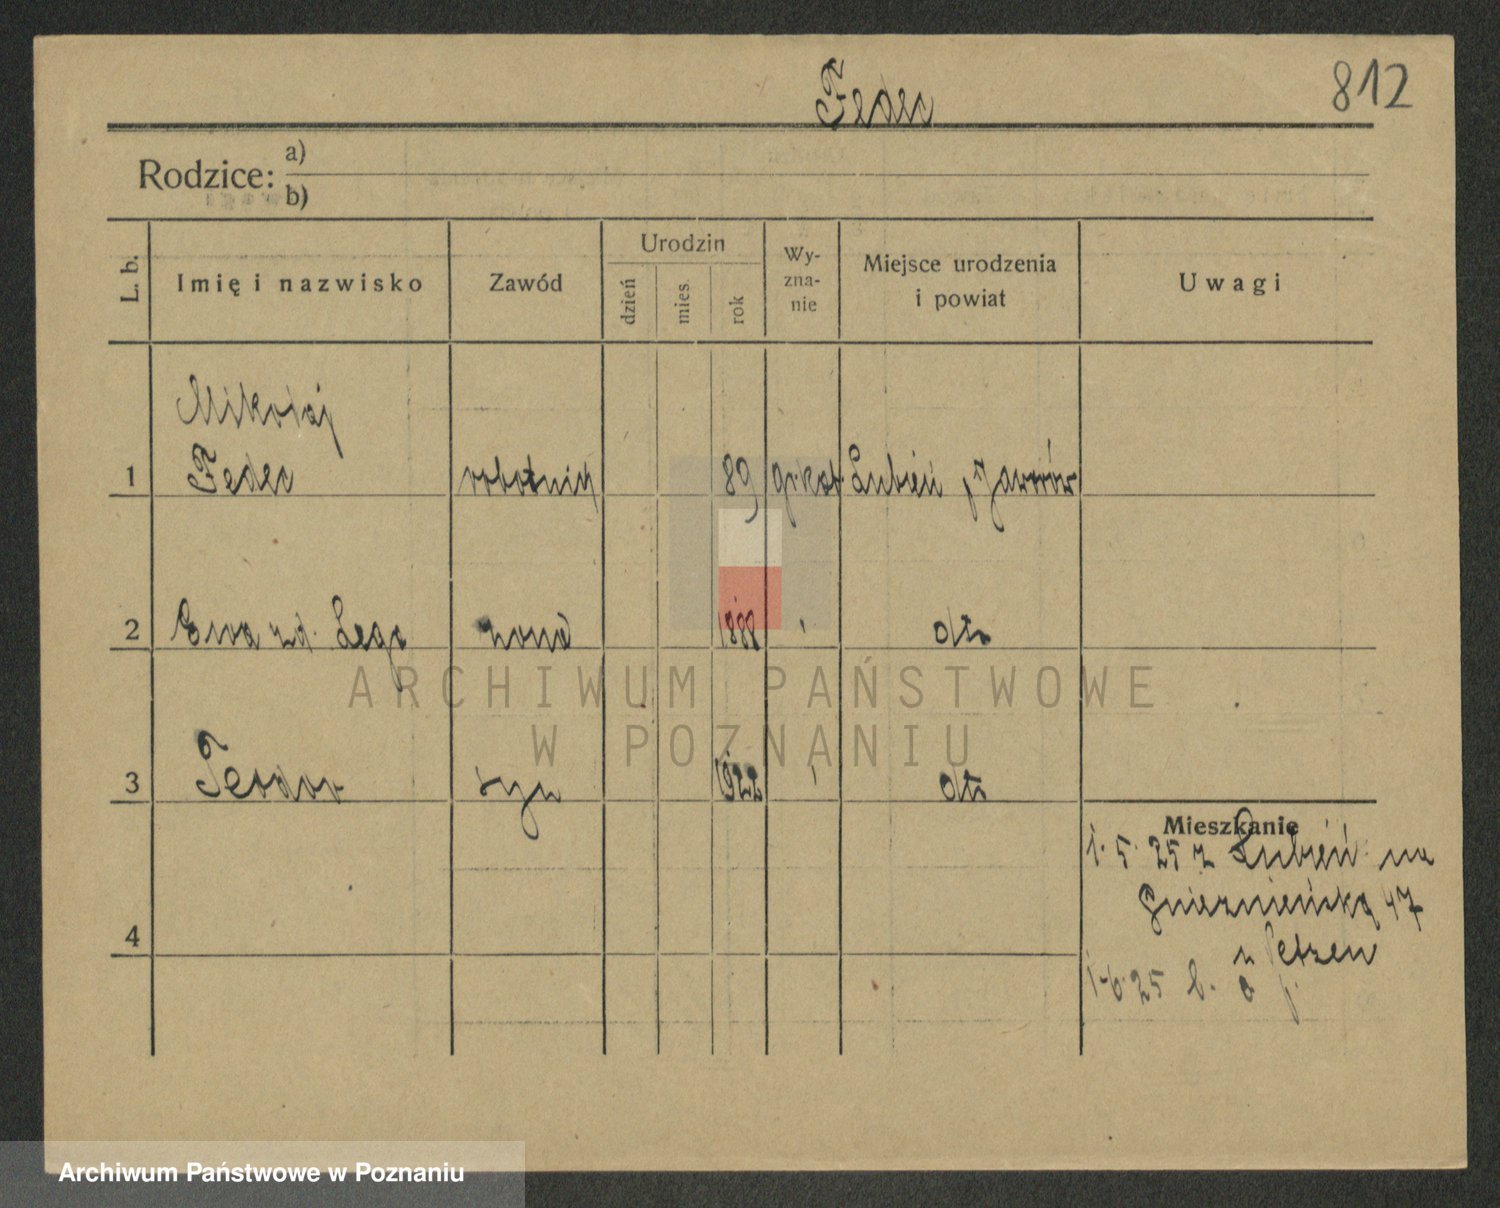 Fedec
812
Rodzice: a)
b)
L. b. Imię i nazwisko Zawód Urodzin dzień mies. rok Wy-zna-nie Miejsce urodzenia i powiat Uwagi
Mikołaj
1 Fedec robotnik 89 gr.kat. Lubień p. Jaworów
2 Ewa zd. Lega żona 1888 dto
3 Teodor syn 1922 dto
Mieszkanie
1.5.25 z Lubień na
Gnieźnieńską 47
4
z Petzen
1.6.25
ARCHIWUM PAŃSTWOWE
W POZNANIU
Archiwum Państwowe w Poznaniu